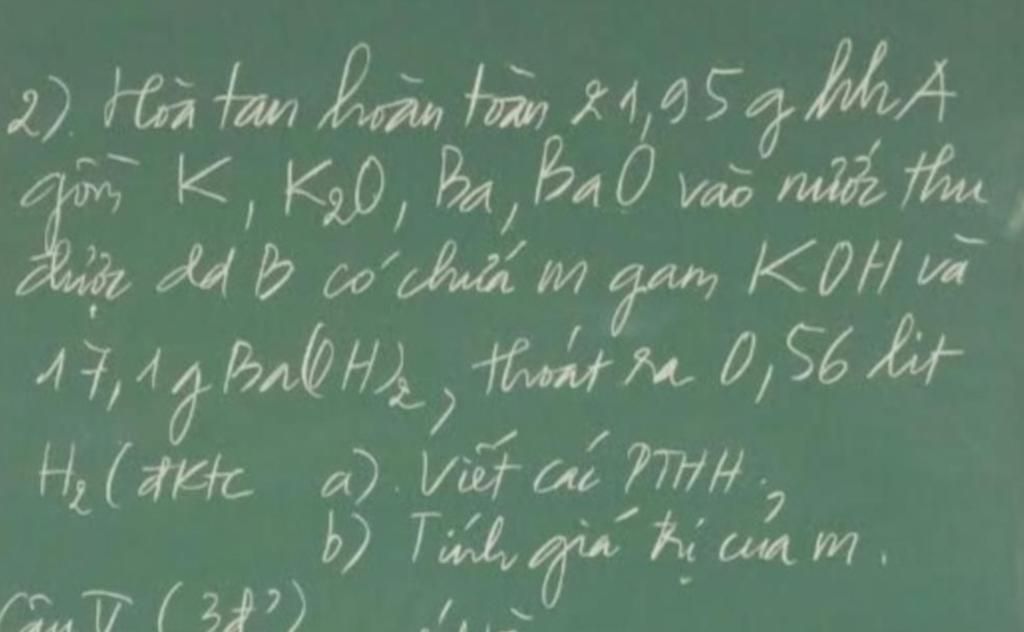 2). Hòa tan hoàn toàn 21,95 g hh A
gồm K, K₂O, Ba, BaO vào nước thu
được dd B có chứa m gam KOH và
17,1 g Ba(OH)₂, thoát ra 0,56 lit
H₂ (đktc a). Viết các PTHH.
b) Tính giá trị của m.
Câu V (3đ)